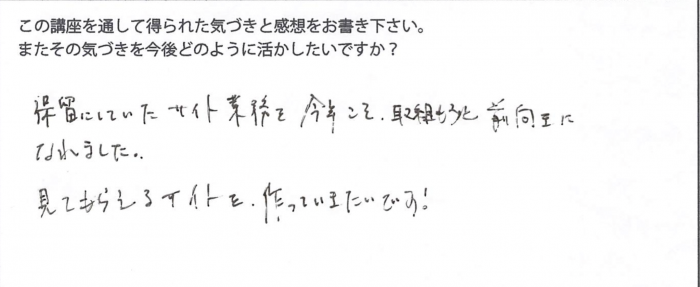 この講座を通して得られた気づきと感想をお書き下さい。
またその気づきを今後どのように活かしたいですか？
保留にしていたサイト業務を今年こそ、取組もうと前向きに
なれました。
見てもらえるサイトを、作っていきたいです!